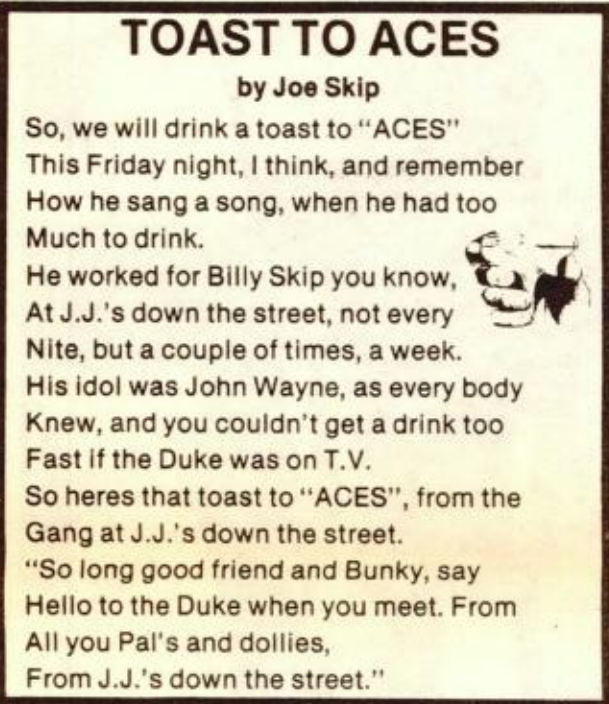 TOAST TO ACES
by Joe Skip
So, we will drink a toast to "ACES"
This Friday night, I think, and remember
How he sang a song, when he had too
Much to drink.
He worked for Billy Skip you know,
At J.J.'s down the street, not every
Nite, but a couple of times, a week.
His idol was John Wayne, as every body
Knew, and you couldn't get a drink too
Fast if the Duke was on T.V.
So heres that toast to "ACES", from the
Gang at J.J.'s down the street.
"So long good friend and Bunky, say
Hello to the Duke when you meet. From
All you Pal's and dollies,
From J.J.'s down the street."